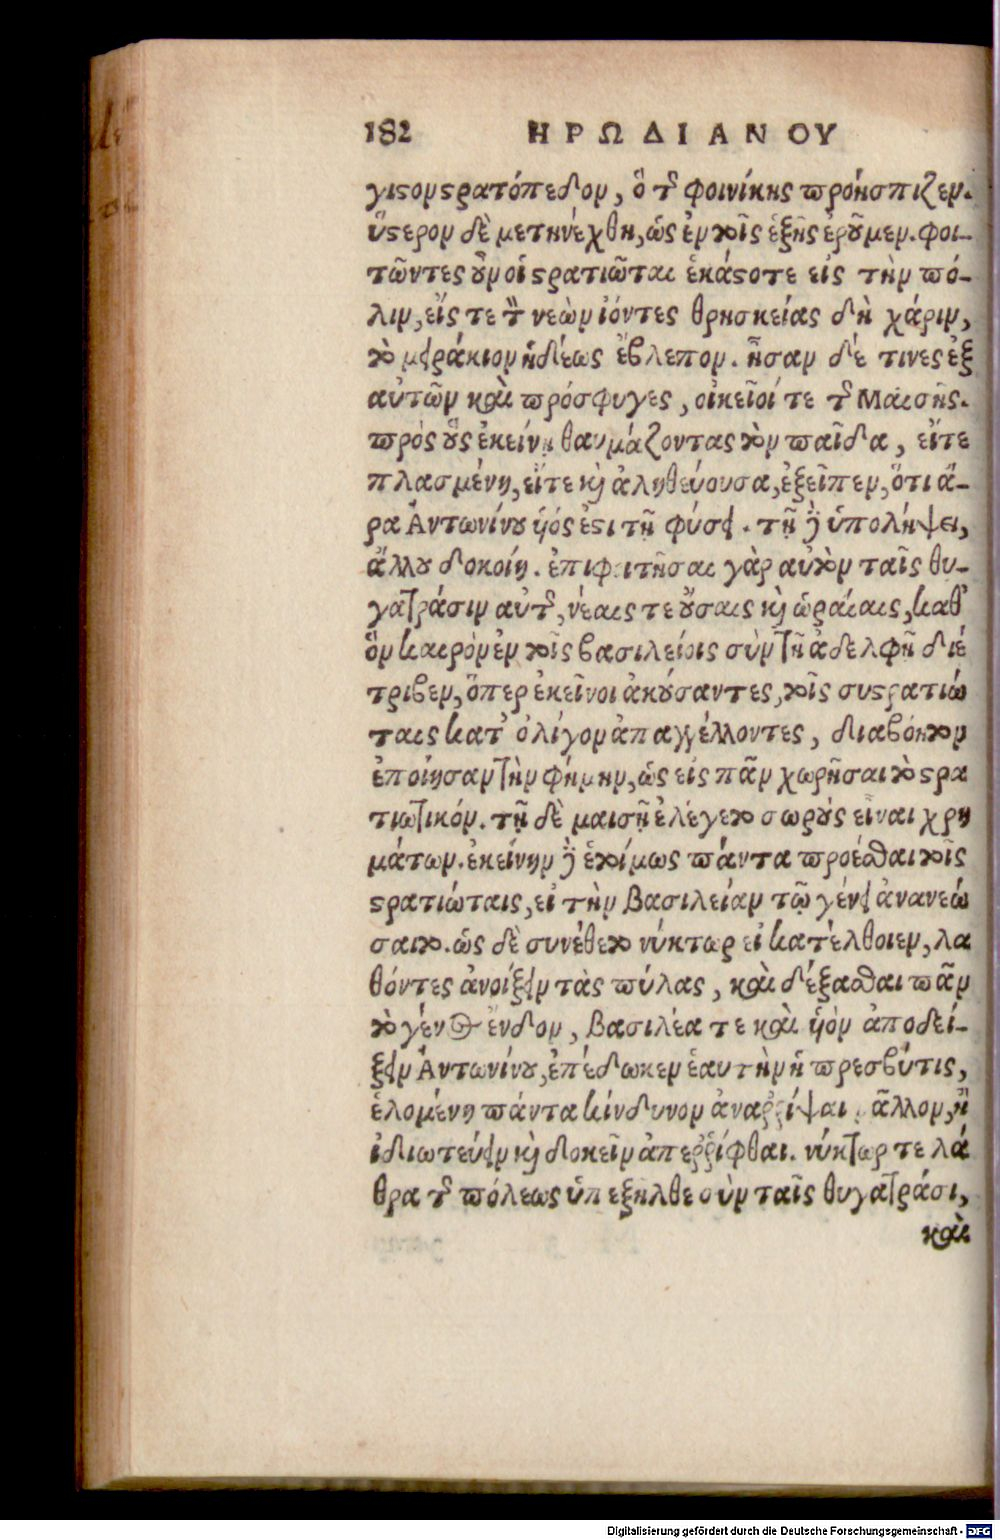 182 ΗΡΩΔΙΑΝΟΥ
γιστον στρατόπεδον, ὃ τῆς φοινίκης προήσπιζεν.
ὕστερον δὲ μετηνέχθη, ὡς ἐν τοῖς ἑξῆς ἐροῦμεν. φοι-
τῶντες οὖν οἱ στρατιῶται ἑκάστοτε εἰς τὴν πό-
λιν, εἴς τε τὸν νεὼν ἰόντες θρησκείας δὴ χάριν,
τὸ μειράκιον ἡδέως ἔβλεπον. ἦσαν δέ τινες ἐξ
αὐτῶν καὶ πρόσφυγες, οἰκεῖοί τε τῆς Μαισῆς.
πρὸς οὓς ἐκείνη θαυμάζοντας τὸν παῖδα, εἴτε
πλασμένη, εἴτε καὶ ἀληθεύουσα, ἐξεῖπεν, ὅτι ἄ-
ρα Ἀντωνίνου υἱός ἐστι τῇ φύσει. τῇ δὲ ὑπολήψει,
ἄλλου δοκοίη. ἐπιφοιτῆσαι γὰρ αὐτὸν ταῖς θυ-
γατράσιν αὐτῆς, νέαις τε οὔσαις καὶ ὡραίαις, καθ’
ὃν καιρὸν ἐν τοῖς βασιλείοις σὺν τῇ ἀδελφῇ διέ
τριβεν, ὅπερ ἐκεῖνοι ἀκούσαντες, τοῖς συστρατιώ
ταις κατ’ ὀλίγον ἀπαγγέλλοντες, διαβόητον
ἐποίησαν τὴν φήμην, ὡς εἰς πᾶν χωρῆσαι τὸ στρα
τιωτικόν. τῇ δὲ μαισῇ ἐλέγετο σωροὺς εἶναι χρη
μάτων. ἐκείνην δὲ ἑτοίμως πάντα προέσθαι τοῖς
στρατιώταις, εἰ τὴν βασιλείαν τῷ γένει ἀνανεώ
σαιτο. ὡς δὲ συνέθετο νύκτωρ εἰ κατέλθοιεν, λα
θόντες ἀνοίξειν τὰς πύλας, καὶ δέξασθαι πᾶν
τὸ γένος ἔνδον, βασιλέα τε καὶ υἱὸν ἀποδεί-
ξειν Ἀντωνίνου, ἐπέδωκεν ἑαυτὴν ἡ πρεσβύτις,
ἑλομένη πάντα κίνδυνον ἀναῤῥίψαι ᾶλλον, ἢ
ἰδιωτεύειν καὶ δοκεῖν ἀπεῤῥίφθαι. νύκτωρ τε λά
θρα τῆς πόλεως ὑπεξῆλθε σὺν ταῖς θυγατράσι,
καὶ
Digitalisierung gefördert durch die Deutsche Forschungsgemeinschaft - DFG